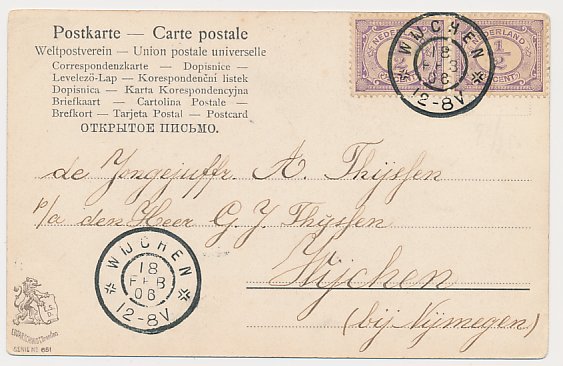 Postkarte — Carte postale
Weltpostverein — Union postale universelle
Correspondenzkarte — Dopisnice —
Levelező-Lap — Korespondenční listek
Dopisnica — Karta Korespondencyjna
Briefkaart — Cartolina Postale —
Brefkort — Tarjeta Postal — Postcard
ОТКРЫТОЕ ПИСЬМО.
NEDERLAND
1/2
CENT
NEDERLAND
1/2
CENT
WIJCHEN
18
FEB
06
12-8V
de Jongejuffr A. Thijssen
p/a den Heer G. J. Thijssen
Wijchen
(bij Nijmegen)
WIJCHEN
18
FEB
06
12-8V
SERIE Nº 651